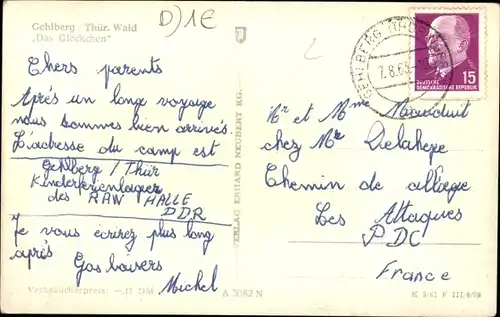 Gehlberg / Thür. Wald
"Das Glöckchen"
D)1E
Chers parents
Après un long voyage
nous sommes bien arrivés.
L'adresse du camp est
Gehlberg / Thür
Kinderferienlager
des RAW HALLE
DDR
Je vous écrirez plus long
après
Gos baisers
Michel
Verbraucherpreis: —,15 DM
A 3082 N
VERLAG ERHARD NEUBERT KG.
GEHLBERG (THÜR
7.8.63
15
DEUTSCHE
DEMOKRATISCHE REPUBLIK
Mr et Mme Mauduit
chez Mr Delahaye
Chemin de allège
Les Attaques
PDC
France